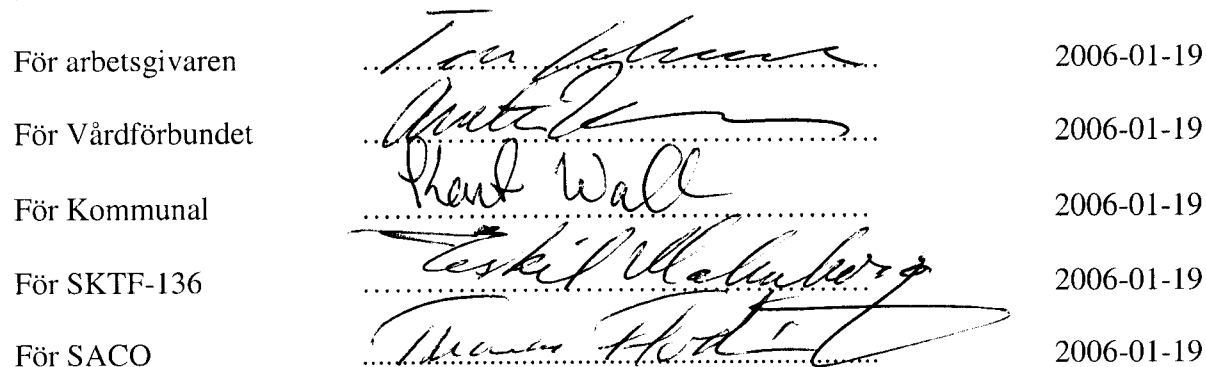 För arbetsgivaren 2006-01-19
För Vårdförbundet 2006-01-19
För Kommunal Wall 2006-01-19
För SKTF-136 Eskil Malmberg 2006-01-19
För SACO 2006-01-19